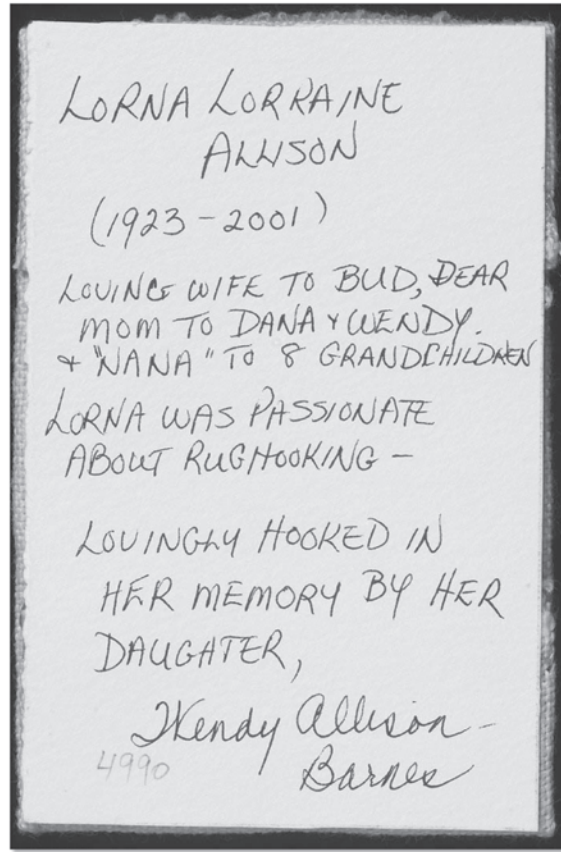 LORNA LORRAINE
ALLISON
(1923-2001)
LOVING WIFE TO BUD, DEAR
MOM TO DANA & WENDY.
& "NANA" TO 8 GRANDCHILDREN
LORNA WAS PASSIONATE
ABOUT RUGHOOKING -
LOVINGLY HOOKED IN
HER MEMORY BY HER
DAUGHTER,
Wendy Allison-
Barnes
4990